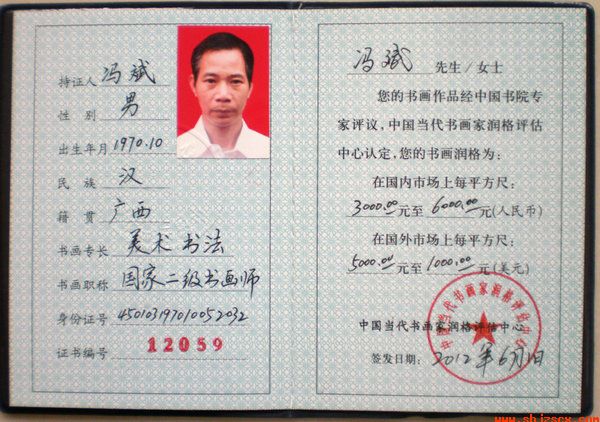 持证人 冯斌
性别 男
出生年月 1970.10
民族 汉
籍贯 广西
书画专长 美术 书法
书画职称 国家二级书画师
身份证号 450103197010052032
证书编号 12059
冯斌 先生/女士
您的书画作品经中国书院专
家评议，中国当代书画家润格评估
中心认定，您的书画润格为：
在国内市场上每平方尺：
3000.00元至 6000.00元(人民币)
在国外市场上每平方尺：
5000.00元至 1000.00元(美元)
中国当代书画家润格评估中心
中国当代书画家润格评估中心
签发日期：2012年6月1日
www.shizscx.com